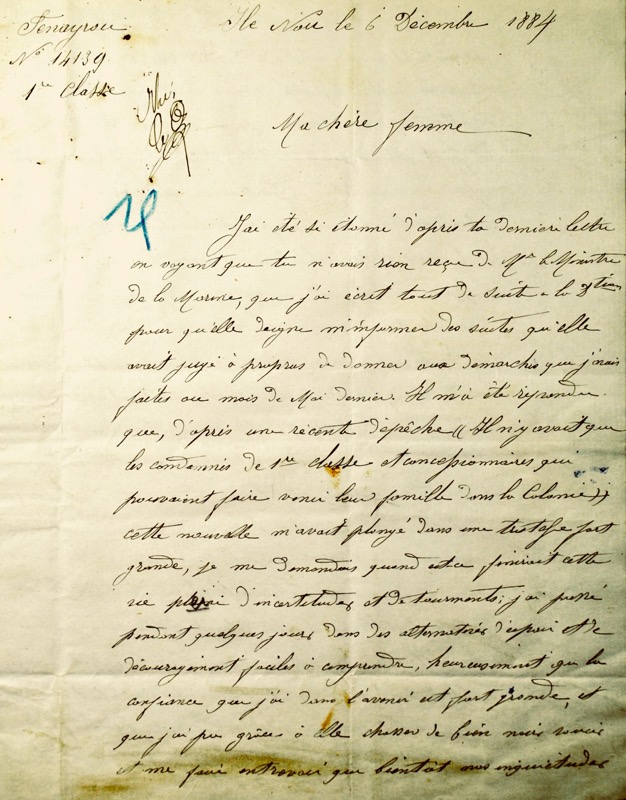 Fenayrou
Ile Nou le 6 Décembre 1884
No 14139
1re Classe
Ma chère femme
J'ai été si étonné d'après ta dernière lettre
en voyant que tu n'avais rien reçu de Mr le Ministre
de la Marine, que j'ai écrit tout de suite a la don
pour qu'elle daigne m'informer des suites qu'elle
avait jugé à propros de donner aux démarches que j'avais
faites au mois de Mai dernier. Il m'a été répondu
que, d'après une récente dépêche (( Il n'y avait que
les condamnés de 1re classe et concessionnaires qui
pouvaient faire venir leur famille dans la Colonie ))
cette nouvelle m'avait plongé dans une tristesse fort
grande, je me demandais quand est ce finirait cette
vie d'incertitudes et de tourments; j'ai passé
pendant quelques jours dans des alternatives d'espoir et de
découragement faciles à comprendre, heureusement que la
confiance que j'ai dans l'avenir est fort grande, et
que j'ai pu grâce à elle chasser de bien noirs soucis
et me faire entrevoir que bientôt nos inquiétudes